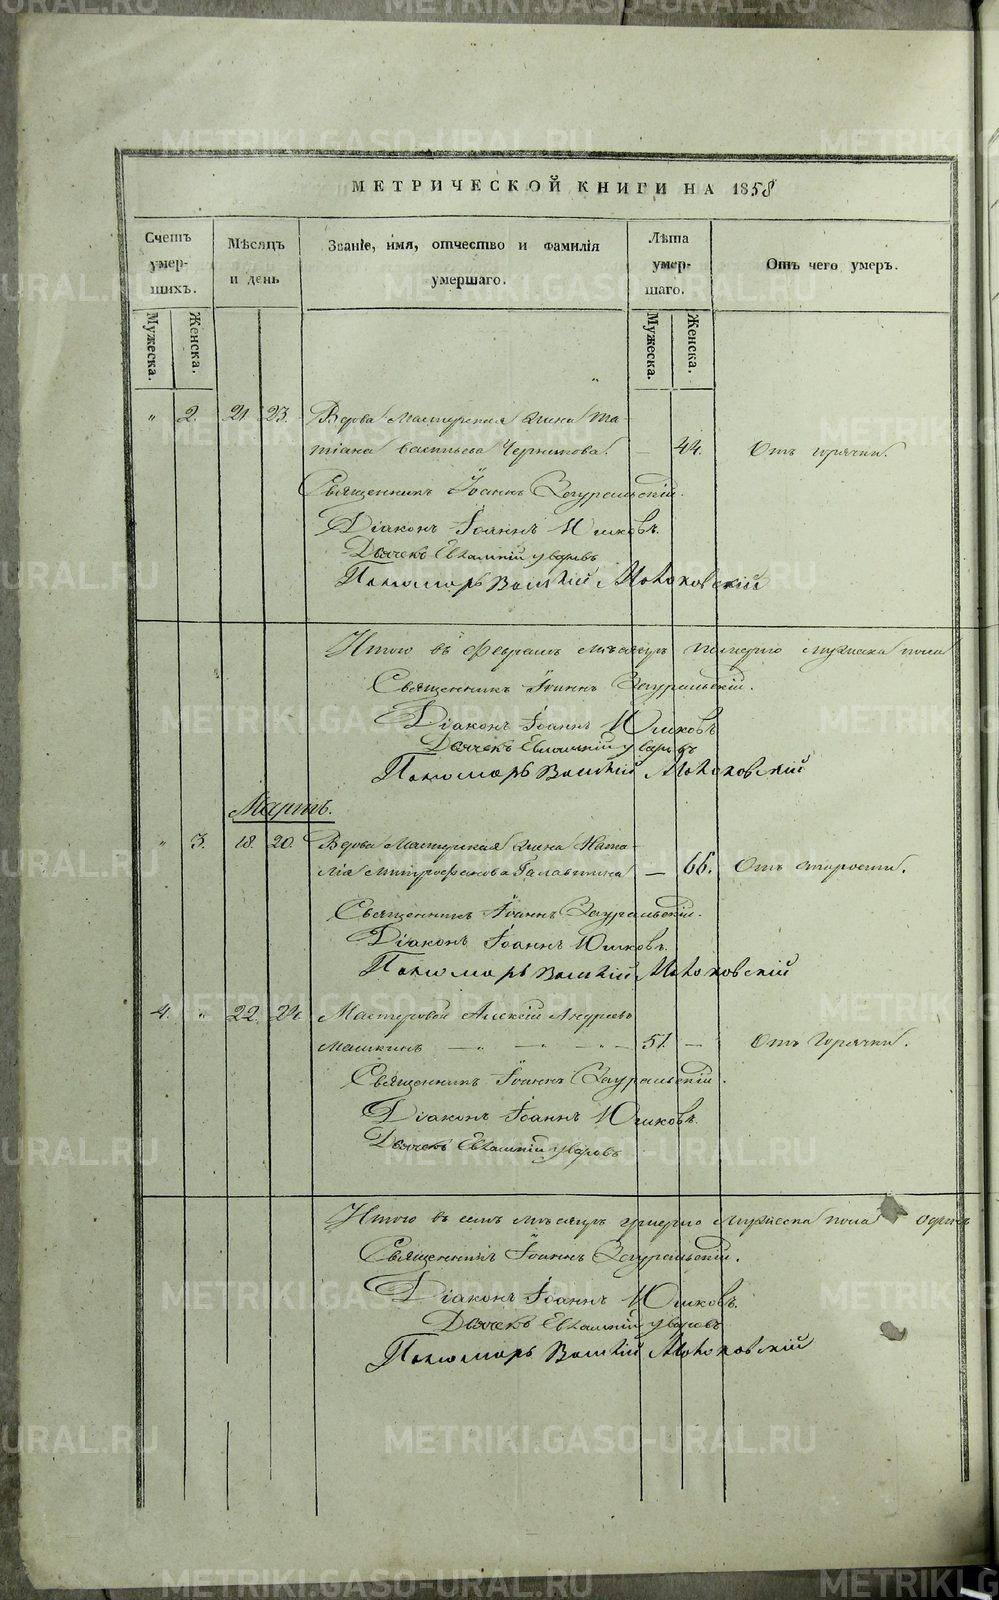 METRIKI.GASO-URAL.RU
МЕТРИЧЕСКОЙ КНИГИ НА 1858
Счетъ умер-шихъ.
Мѣсяцъ и день
Званіе, имя, отчество и фамилія умершаго.
Лѣта умер-шаго.
Отъ чего умеръ.
Мужеска.
Женска.
Мужеска.
Женска.
" 2. 21 23. Вдова Мастерская жена Та-
тіана Васильева Черникова. — 44. Отъ горячки.
Священникъ Іоаннъ Зауральскій.
Діаконъ Іоаннъ Юшковъ.
Дьячекъ Евлампій Уваровъ
Пономарь Василій
Итого въ Февралѣ мѣсяцѣ померло мужеска пола
Священникъ Іоаннъ Зауральскій.
Діаконъ Іоаннъ Юшковъ
Дьячекъ Евлампій Уваровъ
Пономарь Василій
Мартъ.
" 3. 18. 20. Вдова Мастерская жена Ната-
лія Митрофанова — 66. Отъ старости.
Священникъ Іоаннъ Зауральскій.
Діаконъ Іоаннъ Юшковъ.
Пономарь Василій
4. " 22. 24. Мастеровой Алексій Андреевъ
Машкинъ — " — " — " — 51. — Отъ Горячки.
Священникъ Іоаннъ Зауральскій.
Діаконъ Іоаннъ Юшковъ.
Дьячекъ Евлампій Уваровъ
Итого въ семъ мѣсяцѣ умерло мужеска пола одинъ
Священникъ Іоаннъ Зауральскій.
Діаконъ Іоаннъ Юшковъ.
Дьячекъ Евлампій Уваровъ
Пономарь Василій